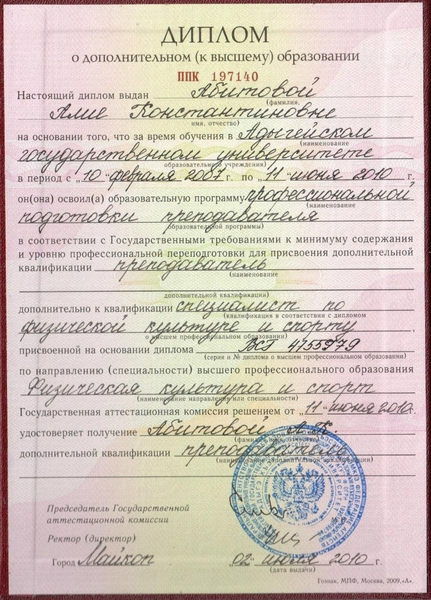 ДИПЛОМ
о дополнительном (к высшему) образовании
ППК 197140
Настоящий диплом выдан Абитовой
фамилия,
Алие Константиновне
имя, отчество)
на основании того, что за время обучения в Адыгейском
(наименование
государственном университете
образовательного учреждения)
в период с „10“ февраля 2007 г. по „11“ июня 2010 г.
он(она) освоил(а) образовательную программу профессиональной
(наименование
подготовки преподавателя
образовательной программы)
в соответствии с Государственными требованиями к минимуму содержания
и уровню профессиональной переподготовки для присвоения дополнительной
квалификации преподаватель
(наименование
дополнительной квалификации)
дополнительно к квалификации специалист по
(квалификация в соответствии с дипломом
физической культуре и спорту
высшем профессиональном образовании)
присвоенной на основании диплома ВСГ 4755979
(серия и № диплома о высшем профессиональном образовании)
по направлению (специальности) высшего профессионального образования
Физическая культура и спорт
(наименование направления или специальности)
Государственная аттестационная комиссия решением от „11“ июня 2010г.
удостоверяет получение Абитовой А.К.
(фамилия, имя, отчество)
дополнительной квалификации преподаватель
Председатель Государственной
аттестационной комиссии
Ректор (директор)
Город Майкоп 02 июля 2010 г.
(дата выдачи)
Гознак, МПФ, Москва, 2009, «А».